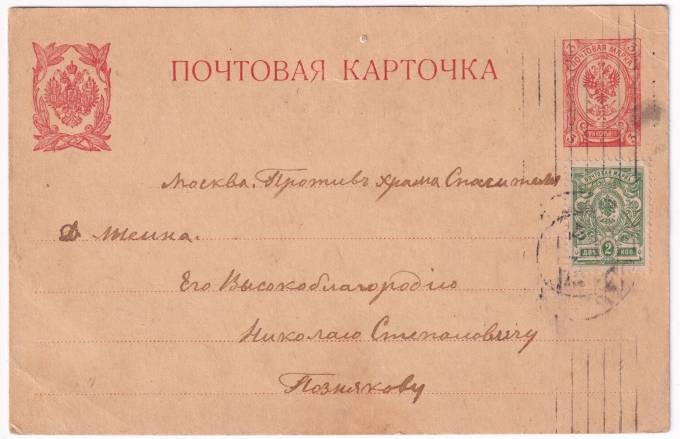 ПОЧТОВАЯ КАРТОЧКА
3 3
ПОЧТОВАЯ МАРКА
3 3
ПОЧТОВАЯ МАРКА
2
ДВѢ КОП.
Москва. Противъ храма Спасителя
Д
Его Высокоблагородію
Николаю Степановичу
Познякову